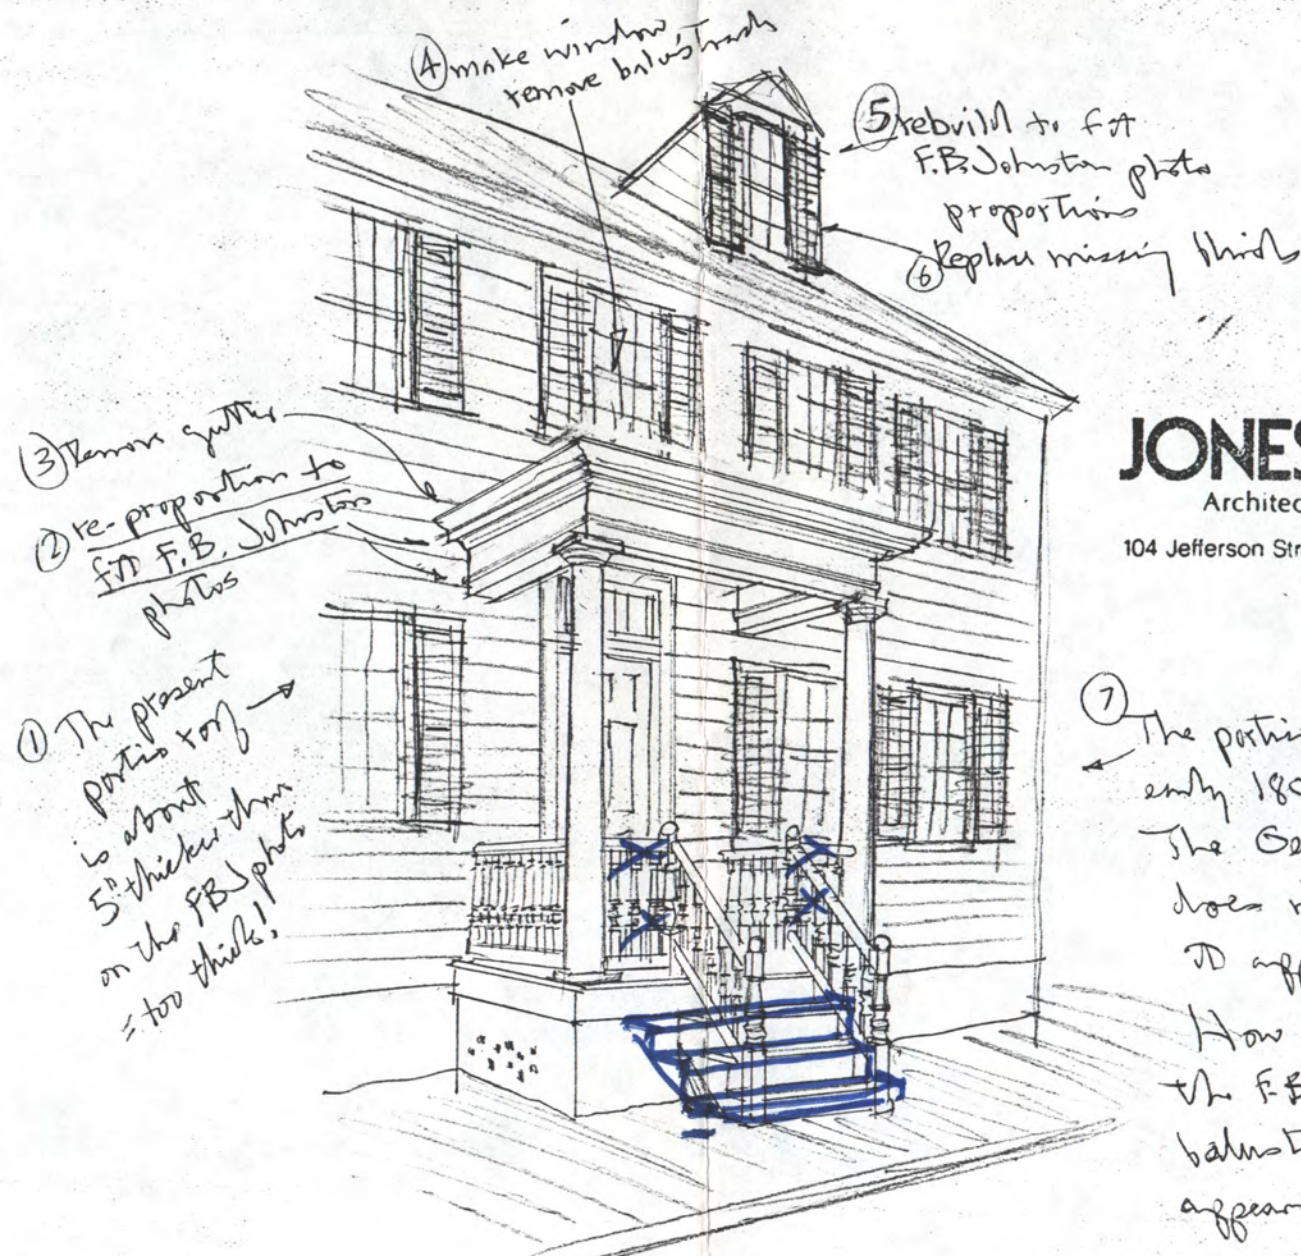 ④ make window,
remove balustrade
⑤ rebuild to fit
F.B. Johnston photo
proportions
⑥ Replace missing blinds
③ Remove gutter
② re-proportion to
fit F.B. Johnston
photos
① The present
portico roof
is about
5" thicker than
on the FBJ photo
= too thick!
JONES
Architec
104 Jefferson Str
⑦
The portic
early 180
The Ge
does n
it app
How
the F.B
balust
appear